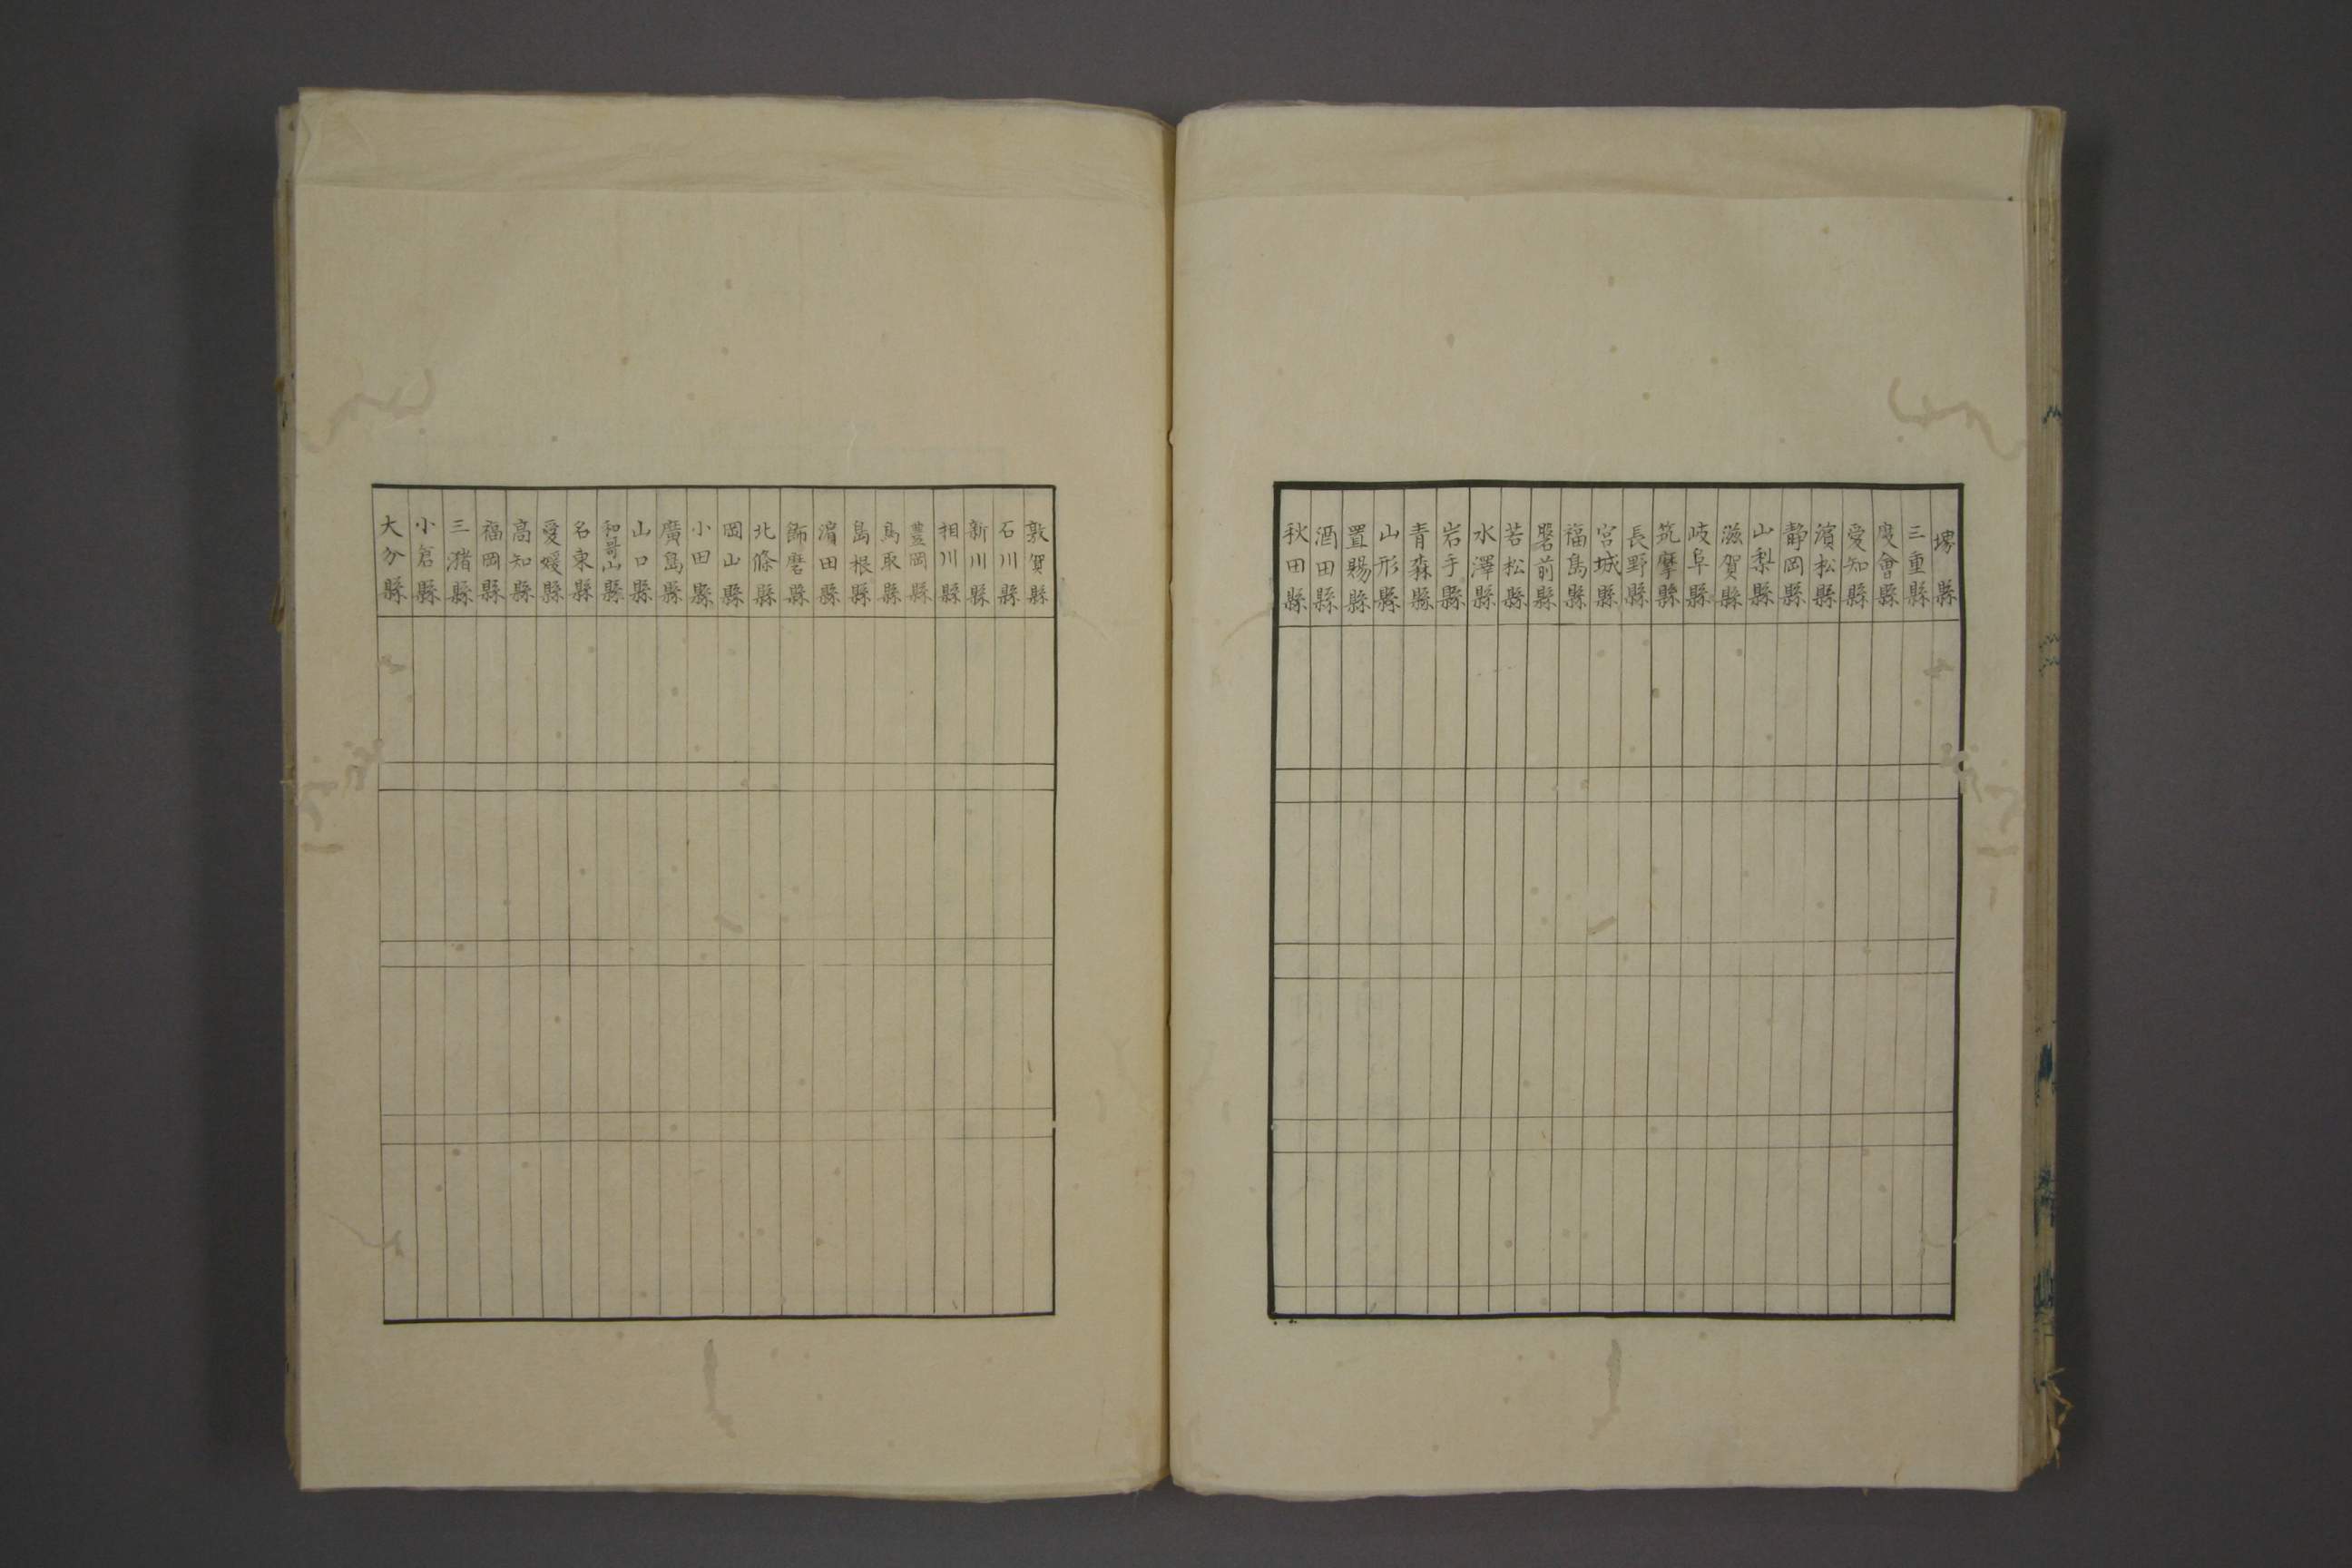 堺縣
三重縣
度會縣
愛知縣
濱松縣
静岡縣
山梨縣
滋賀縣
岐阜縣
筑摩縣
長野縣
宮城縣
福島縣
磐前縣
若松縣
水澤縣
岩手縣
青森縣
山形縣
置賜縣
酒田縣
秋田縣
敦賀縣
石川縣
新川縣
相川縣
豊岡縣
鳥取縣
島根縣
濵田縣
飾磨縣
北條縣
岡山縣
小田縣
廣島縣
山口縣
和哥山縣
名東縣
愛媛縣
高知縣
福岡縣
三潴縣
小倉縣
大分縣